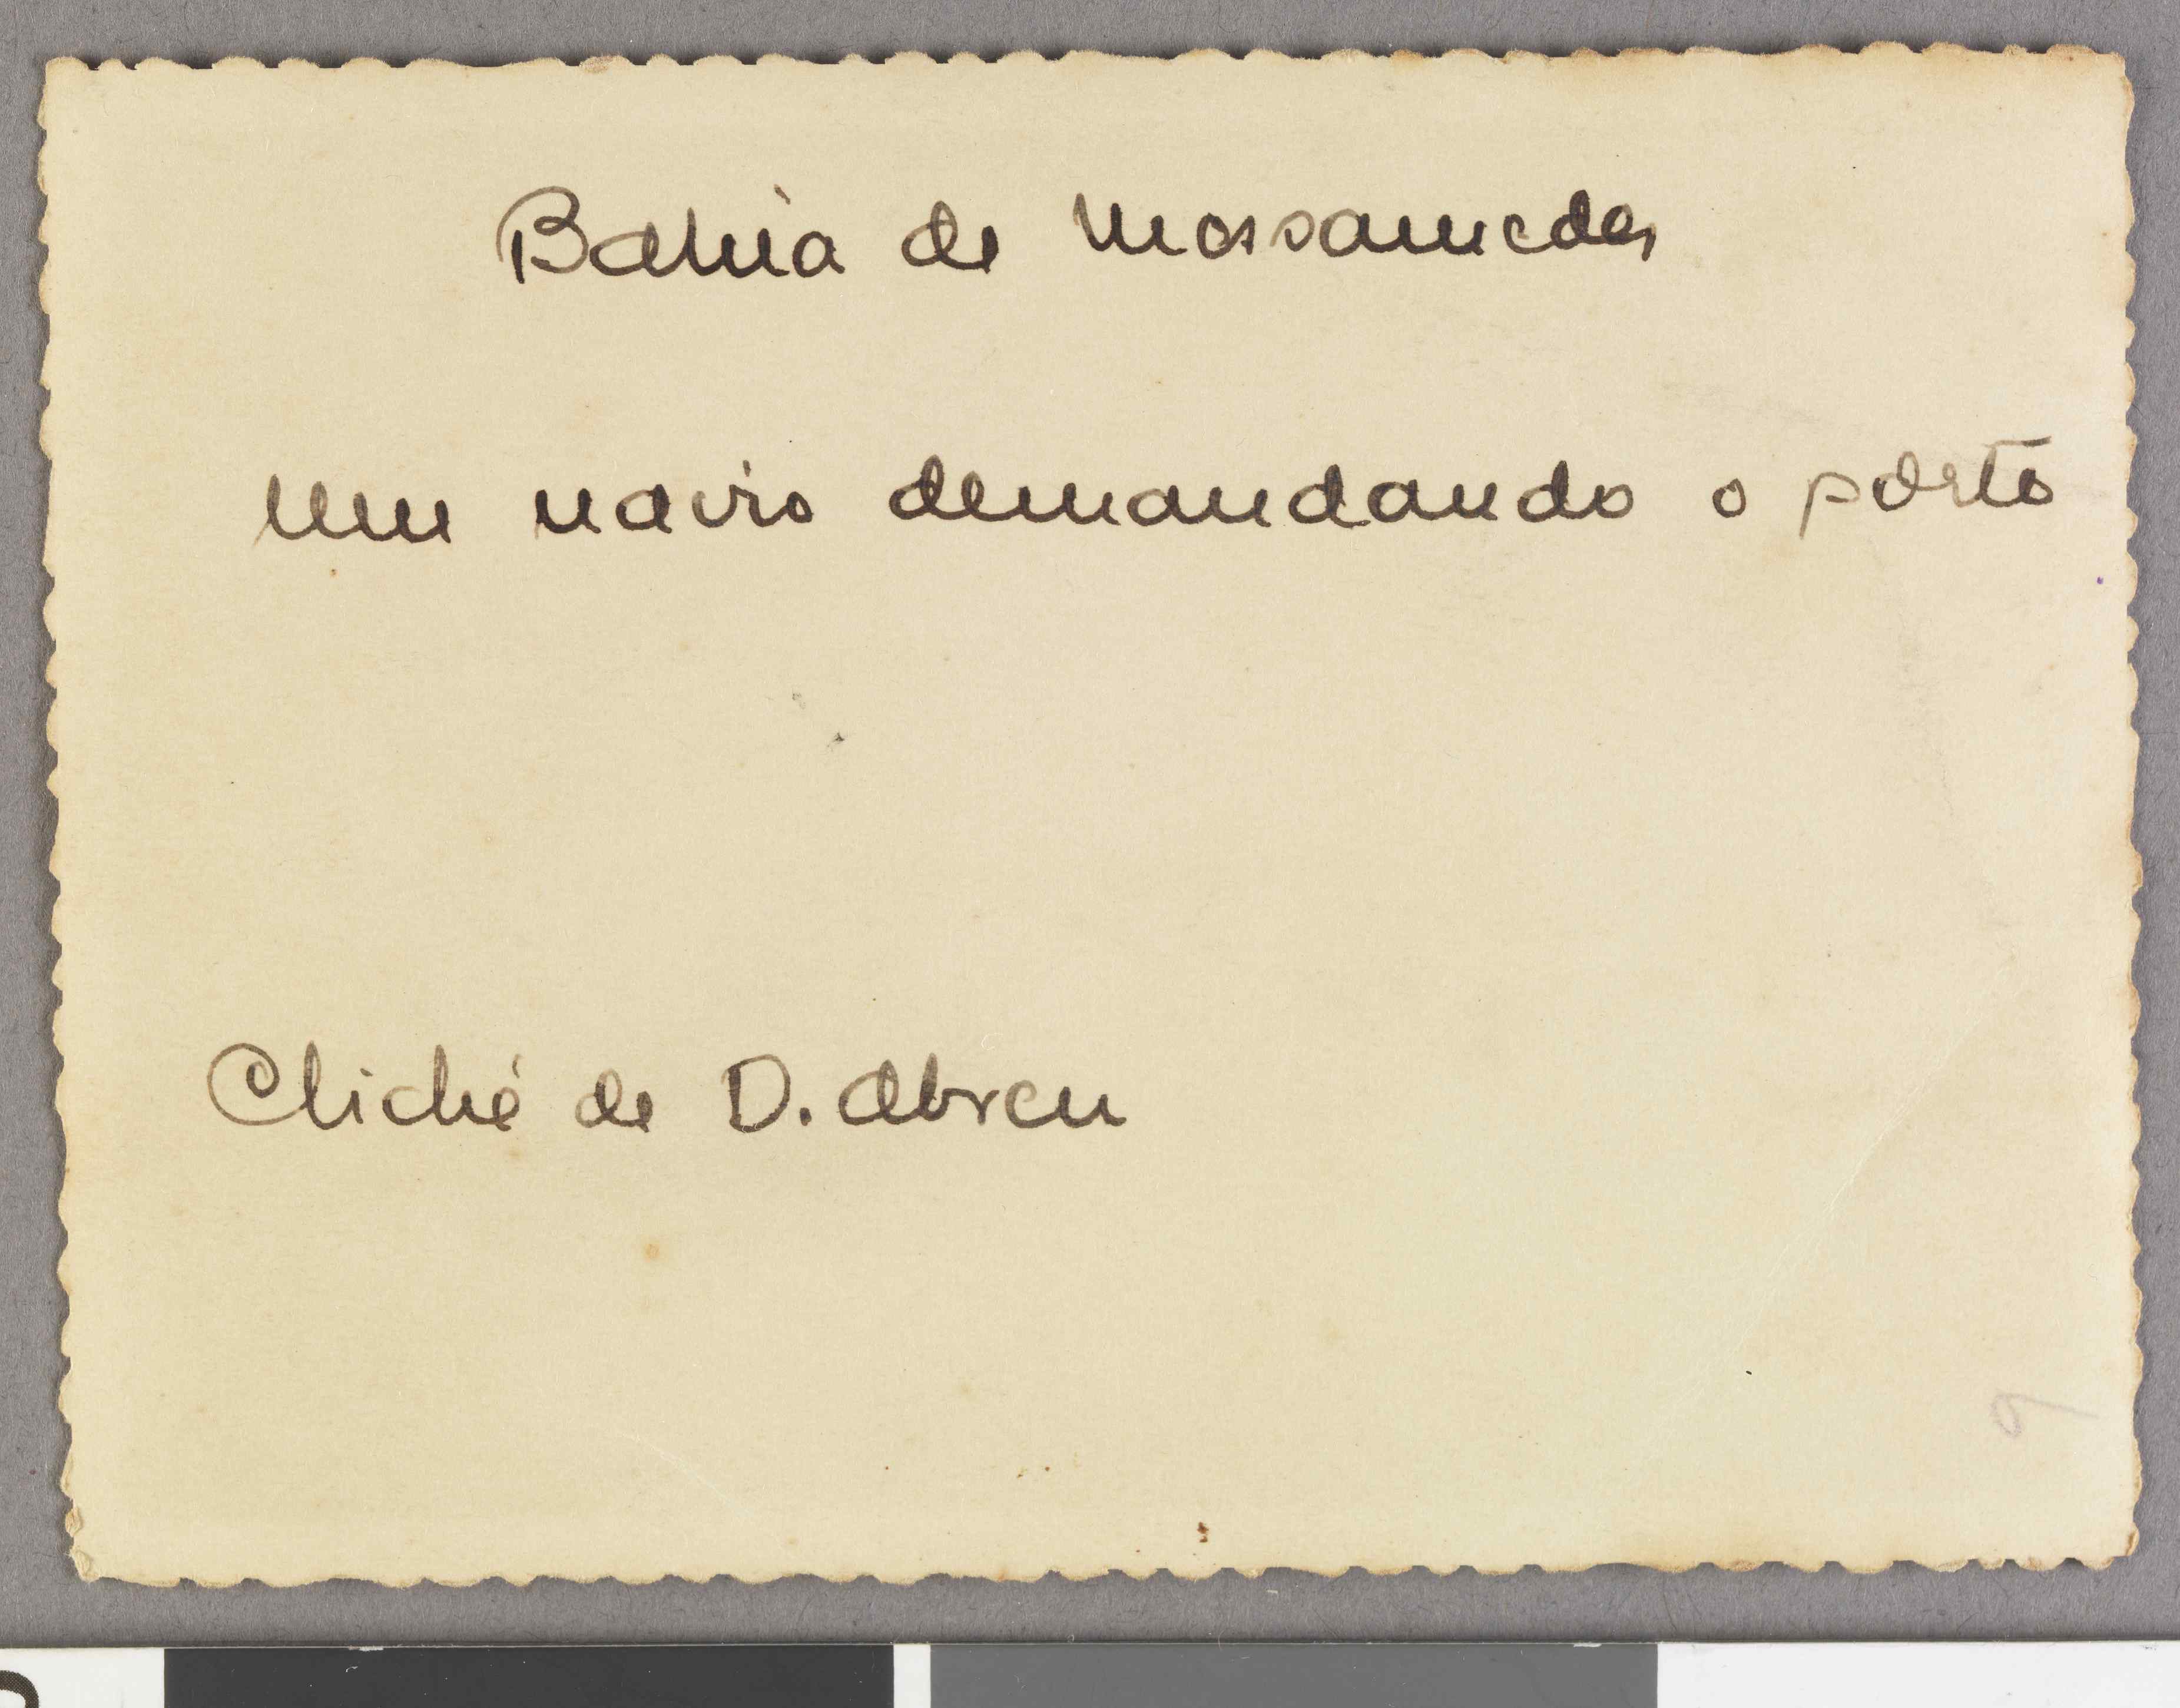 Bahia de Mossamedes
Um navio demandando o porto
Cliché de D. Abreu